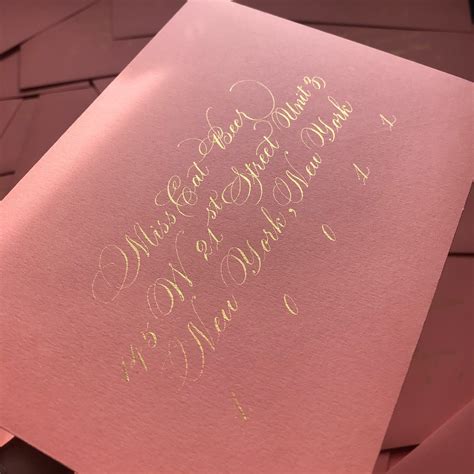 Miss Cat Beer
145 W 21 st Street Unit 3
New York, New York
1 0 0 1 1